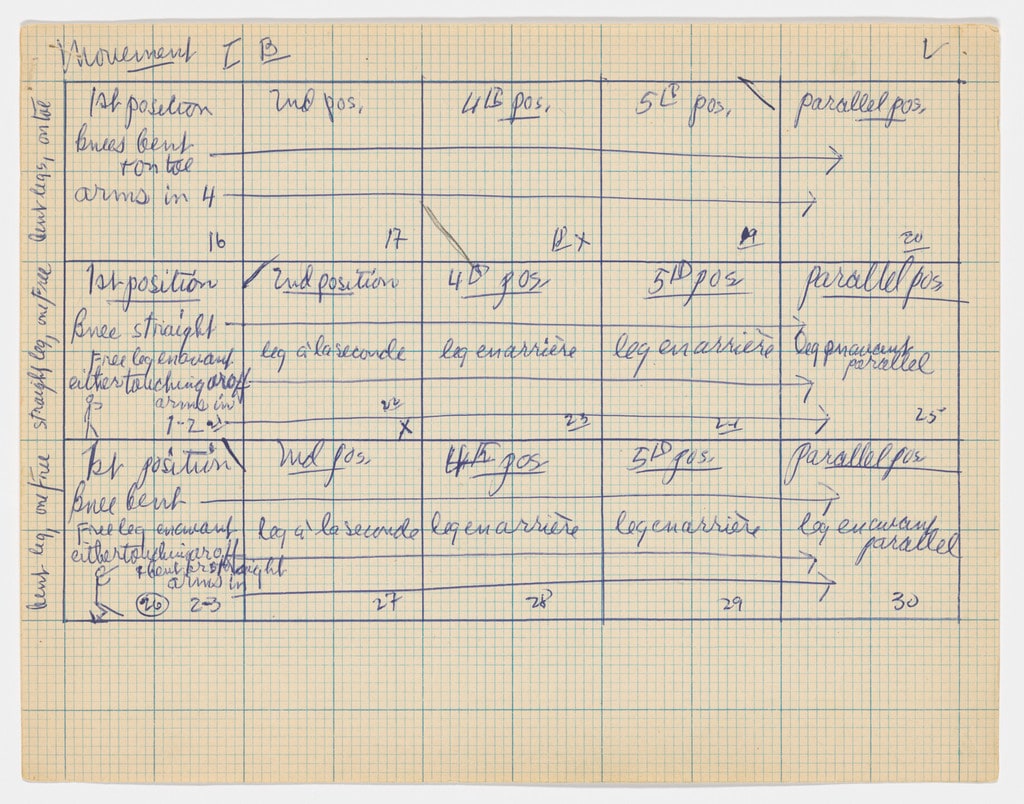 Movement I B
1st position 2nd pos. 4th pos. 5th pos. parallel pos.
Knees bent
+ on toe
arms in 4
16 17 18 X 19 20
bent legs, on toe
1st position 2nd position 4th pos 5th pos parallel pos
Knee straight
Free leg en avant leg à la seconde leg en arrière leg en arrière leg en avant
parallel
either touching or off
arms in
1-2 22 X 23 24 25
straight leg, one free
1st position 2nd pos. 4th pos 5th pos. parallel pos
Knee bent
Free leg en avant leg à la seconde leg en arrière leg en arrière leg en avant
parallel
either touching or off
+ bent or straight
arms in
26 2-3 27 28 29 30
bent leg, one free